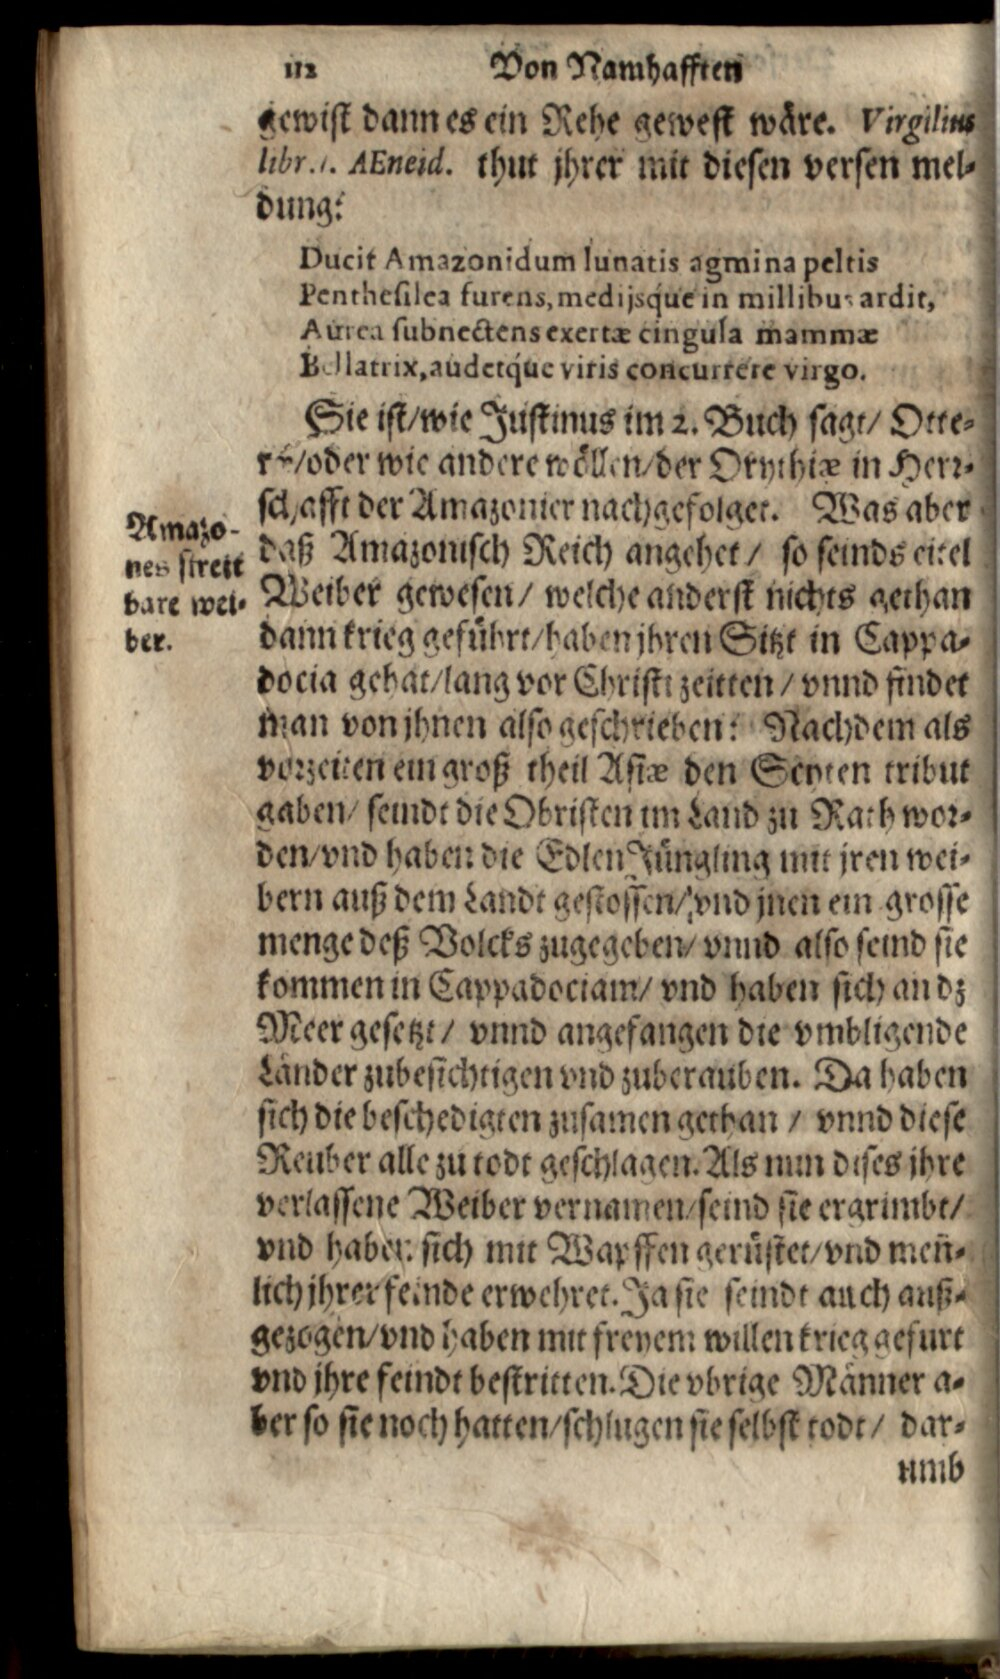 112 Von Namhafften
gewist dann es ein Rehe gewest wåre. Virgilius
libr. 1. AEneid. thut jhrer mit diesen versen mel-
dung:
Ducit Amazonidum lunatis agmina peltis
Penthesilea furens, medijsq́ue in millibus ardit,
Aurea subnectens exertæ cingula mammæ
Bellatrix, audetq́ue viris concurrere virgo.
Sie ist/ wie Justinus im 2. Buch sagt/ Otre-
/ oder wie andere wöllen/ der Orythiæ in Herr-
schafft der Amazonier nachgefolget. Was aber
daß Amazonisch Reich angehet/ so seinds eitel
Weiber gewesen/ welche anderst nichts gethan
dann krieg geführt/ haben jhren Sitzt in Cappa-
docia gehat/ lang vor Christi zeitten/ vnnd findet
man von jhnen also geschrieben: Nachdem als
vorzeiten ein groß theil Asiæ den Scyten tribut
gaben/ seindt die Obristen im Land zu Rath wor-
den/ vnd haben die Edlen Jüngling mit jren wei-
bern auß dem Landt gestossen/ vnd jnen ein grosse
menge deß Volcks zugegeben/ vnnd also seind sie
kommen in Cappadociam/ vnd haben sich an dz
Meer gesetzt/ vnnd angefangen die vmbligende
Länder zubesichtigen vnd zuberauben. Da haben
sich die beschedigten zusamen gethan/ vnnd diese
Reuber alle zu todt geschlagen. Als nun dises jhre
verlassene Weiber vernamen/ seind sie ergrimbt/
vnd haben sich mit Wapffen gerüstet/ vnd men̄-
lich jhrer feinde erwehret. Ja sie seindt auch auß-
gezogen/ vnd haben mit freyem willen krieg gefurt
vnd jhre feindt bestritten. Die vbrige Männer a-
ber so sie noch hatten/ schlugen sie selbst todt/ dar-
umb
Amazo-
nes streit
bare wei-
ber.